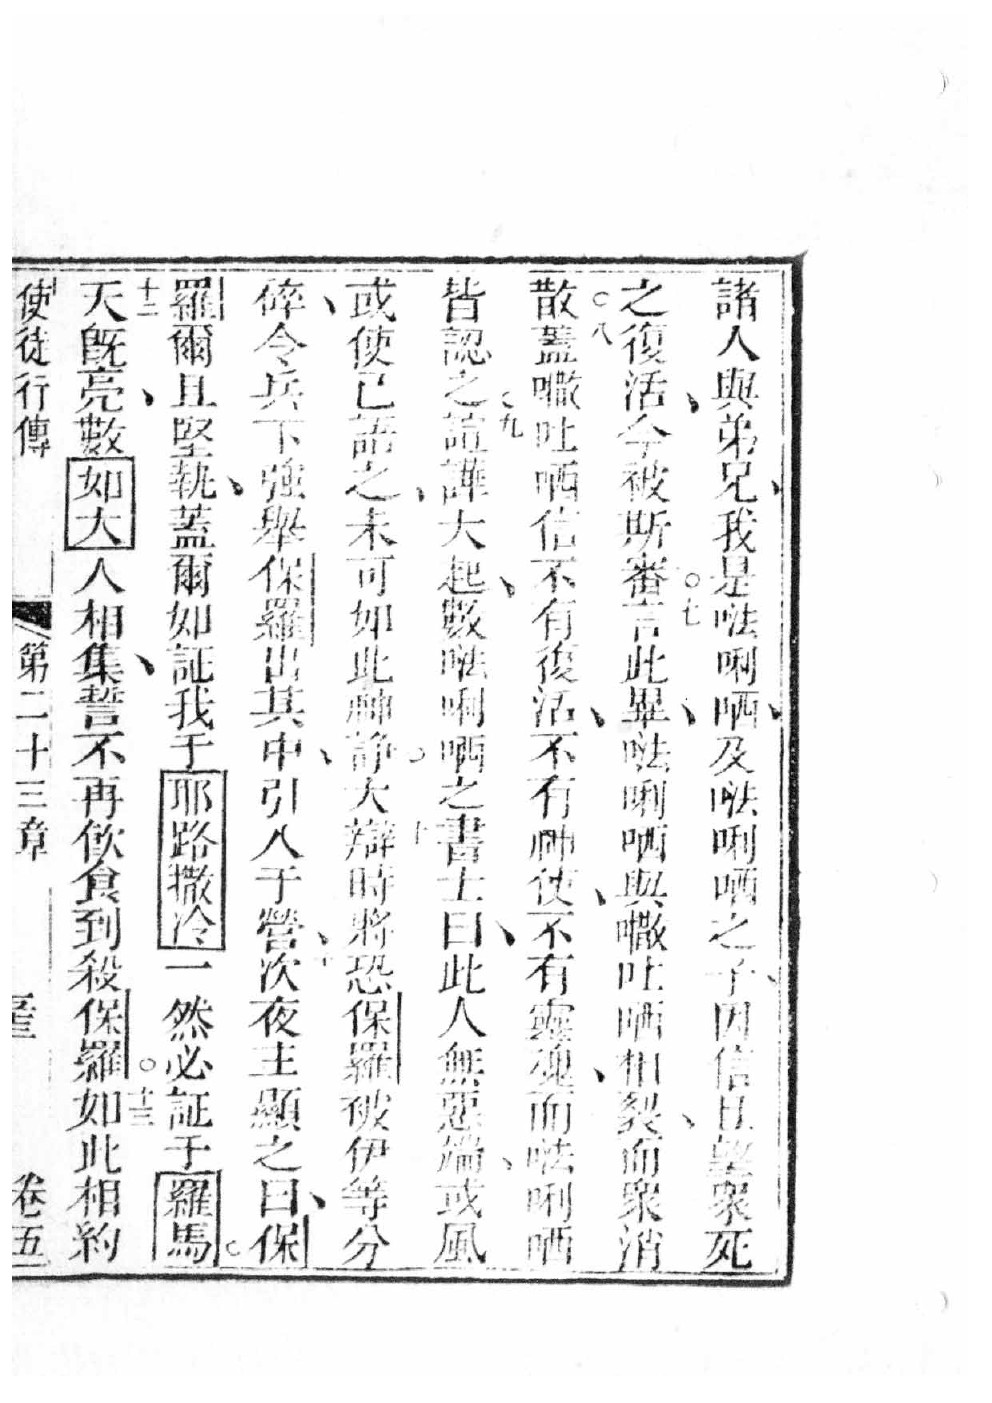 諸人與弟兄我是㗁唎哂及㗁唎哂之子因信且望衆死
之復活今被斯審○七言此畢㗁唎哂與𠹌吐哂相裂而衆消
散○八蓋𠹌吐哂信不有復活不有神使不有靈魂而㗁唎哂
皆認之○九諠譁大起數㗁唎哂之書士曰此人無惡端或風
或使已語之未可如此神靜○十大辯時將恐保羅被伊等分
碎令兵下強舉保羅出其中引入于營○十一次夜主顯之曰保
羅爾且堅執蓋爾如証我于耶路撒冷一然必証于羅馬○
十二天既亮數如大人相集誓不再飲食到殺保羅○十三如此相約
使徒行傳 第二十三章 卷五